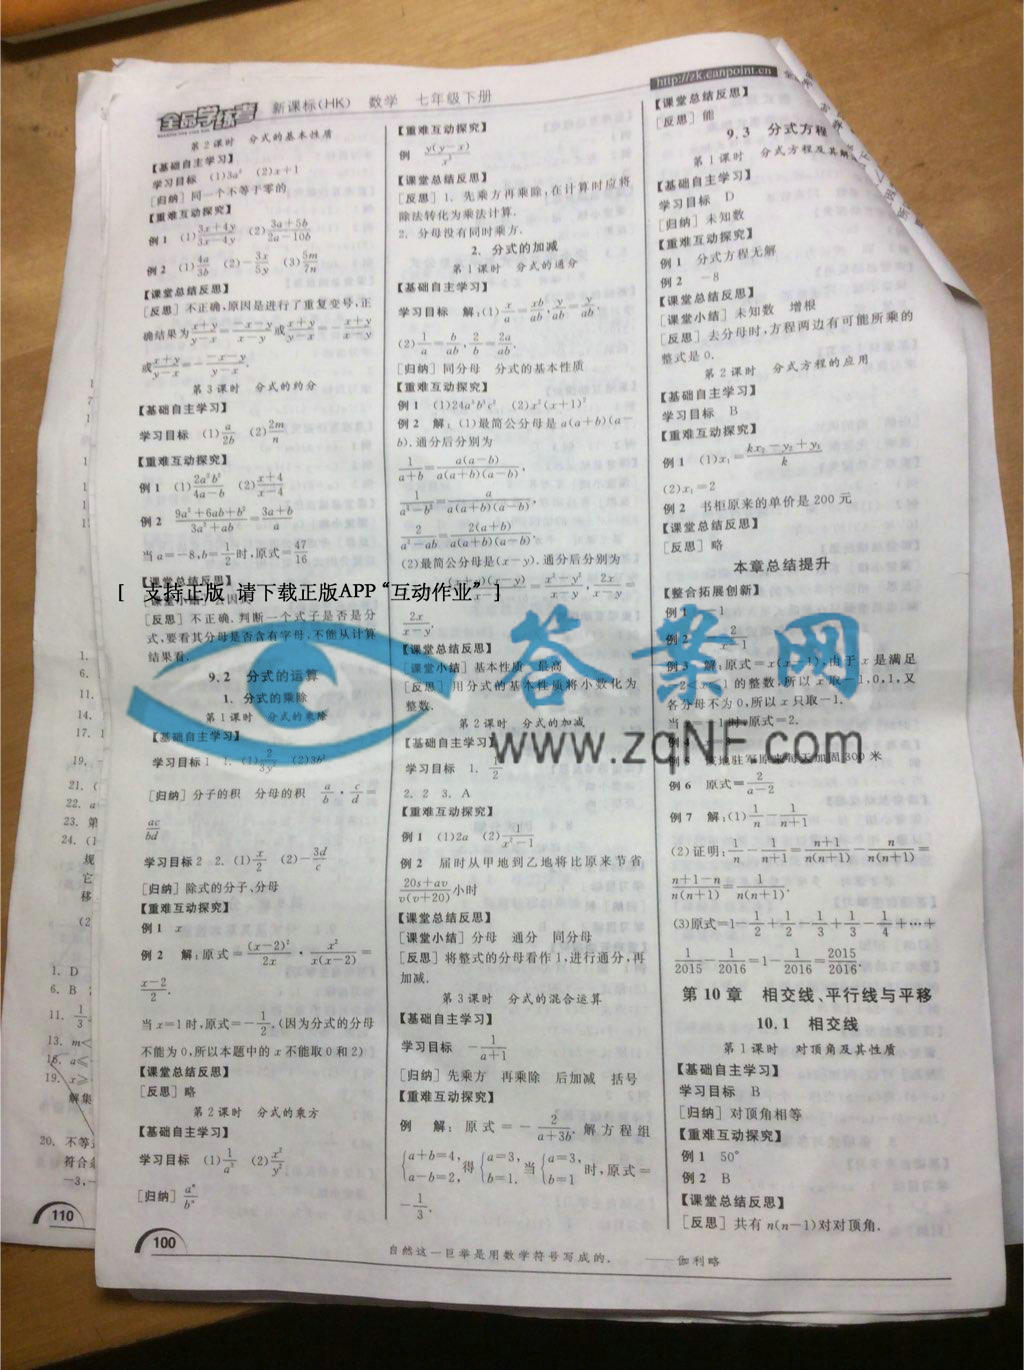 全品学练考 新课标(HK) 数学 七年级下册
http://zk.canpoint.cn
第2课时 分式的基本性质
【基础自主学习】
学习目标 (1)3a² (2)x+1
[归纳] 同一个不等于零的
【重难互动探究】
例1 (1)(3x+4y)/(3x-4y) (2)(3a+5b)/(2a-10b)
例2 (1)4a/3b (2)-3x/5y (3)5m/7n
【课堂总结反思】
[反思] 不正确,原因是进行了重复变号,正
确结果为(x+y)/(y-x)=(-x-y)/(x-y)或(x+y)/(y-x)=-(x+y)/(x-y)
或(x+y)/(y-x)=-(-x-y)/(y-x).
第3课时 分式的约分
【基础自主学习】
学习目标 (1)a/2b (2)2m/n
【重难互动探究】
例1 (1)2a²b²/(4a-b) (2)(x+4)/(x-4)
例2 (9a²+6ab+b²)/(3a²+ab)=(3a+b)/a
当a=-8,b=1/2时,原式=47/16
【课堂总结反思】
[ 支持正版 请下载正版APP“互动作业” ]
[反思] 不正确. 判断一个式子是否是分
式,要看其分母是否含有字母,不能从计算
结果看.
9.2 分式的运算
1. 分式的乘除
第1课时 分式的乘除
【基础自主学习】
学习目标1 1. (1)2/3y (2)3b
[归纳] 分子的积 分母的积 a/b·c/d=
ac/bd
学习目标2 2. (1)x/2 (2)-3d/c
[归纳] 除式的分子、分母
【重难互动探究】
例1 x
例2 解:原式=(x-2)²/2x·x²/x(x-2)=
(x-2)/2.
当x=1时,原式=-1/2.(因为分式的分母
不能为0,所以本题中的x不能取0和2)
【课堂总结反思】
[反思] 略
第2课时 分式的乘方
【基础自主学习】
学习目标 (1)1/a³ (2)x²/y²
[归纳] aⁿ/bⁿ
【重难互动探究】
例 y(y-x)/x³
【课堂总结反思】
[反思] 1. 先乘方再乘除,在计算时应将
除法转化为乘法计算.
2. 分母没有同时乘方.
2. 分式的加减
第1课时 分式的通分
【基础自主学习】
学习目标 解:(1)x/a=xb/ab,y/b=y/ab.
(2)1/a=b/ab,2/b=2a/ab.
[归纳] 同分母 分式的基本性质
【重难互动探究】
例1 (1)24a³b³c² (2)x²(x+1)²
例2 解:(1)最简公分母是a(a+b)(a-
b).通分后分别为
1/(a+b)=a(a-b)/a(a+b)(a-b),
1/(a²-b²)=a/a(a+b)(a-b),
2/(a²-ab)=2(a+b)/a(a+b)(a-b).
(2)最简公分母是(x-y). 通分后分别为
(x+y)(x-y)/(x-y)=(x²-y²)/(x-y),2x/(x-y)=
2x/(x-y).
【课堂总结反思】
[课堂小结] 基本性质 最高
[反思] 用分式的基本性质将小数化为
整数.
第2课时 分式的加减
【基础自主学习】
学习目标 1. 1/2
2. 2 3. A
【重难互动探究】
例1 (1)2a (2)1/(x²-1)
例2 届时从甲地到乙地将比原来节省
(20s+av)/v(v+20)小时
【课堂总结反思】
[课堂小结] 分母 通分 同分母
[反思] 将整式的分母看作1,进行通分,再
加减.
第3课时 分式的混合运算
【基础自主学习】
学习目标 -1/(a+1)
[归纳] 先乘方 再乘除 后加减 括号
【重难互动探究】
例 解:原式=-2/(a+3b). 解方程组
{a+b=4, a-b=2, 得{a=3, b=1. 当{a=3, b=1 时,原式=
-1/3.
【课堂总结反思】
[反思] 能
9.3 分式方程
第1课时 分式方程及其解
【基础自主学习】
学习目标 D
[归纳] 未知数
【重难互动探究】
例1 分式方程无解
例2 -8
【课堂总结反思】
[课堂小结] 未知数 增根
[反思] 去分母时,方程两边有可能所乘的
整式是0.
第2课时 分式方程的应用
【基础自主学习】
学习目标 B
【重难互动探究】
例1 (1)x₁=(kx₂-y₂+y₁)/k
(2)x₁=2
例2 书柜原来的单价是200元
【课堂总结反思】
[反思] 略
本章总结提升
【整合拓展创新】
例1 -1
例2 2/(x-1)
例3 解:原式=x(x-1),由于x是满足
-2<x<1的整数,所以x取-1,0,1,又
各分母不为0,所以x只取-1.
当x=-1时,原式=2.
www.zqNF.com
答案网
例6 原式=2/(a-2)
例7 解:(1)1/n-1/(n+1)
(2)证明:1/n-1/(n+1)=(n+1)/n(n+1)-n/n(n+1)=
(n+1-n)/n(n+1)=1/n(n+1).
(3)原式=1-1/2+1/2-1/3+1/3-1/4+…+
1/2015-1/2016=1-1/2016=2015/2016.
第10章 相交线、平行线与平移
10.1 相交线
第1课时 对顶角及其性质
【基础自主学习】
学习目标 B
[归纳] 对顶角相等
【重难互动探究】
例1 50°
例2 B
【课堂总结反思】
[反思] 共有n(n-1)对对顶角.
110
100
自然这一巨举是用数学符号写成的. ——伽利略